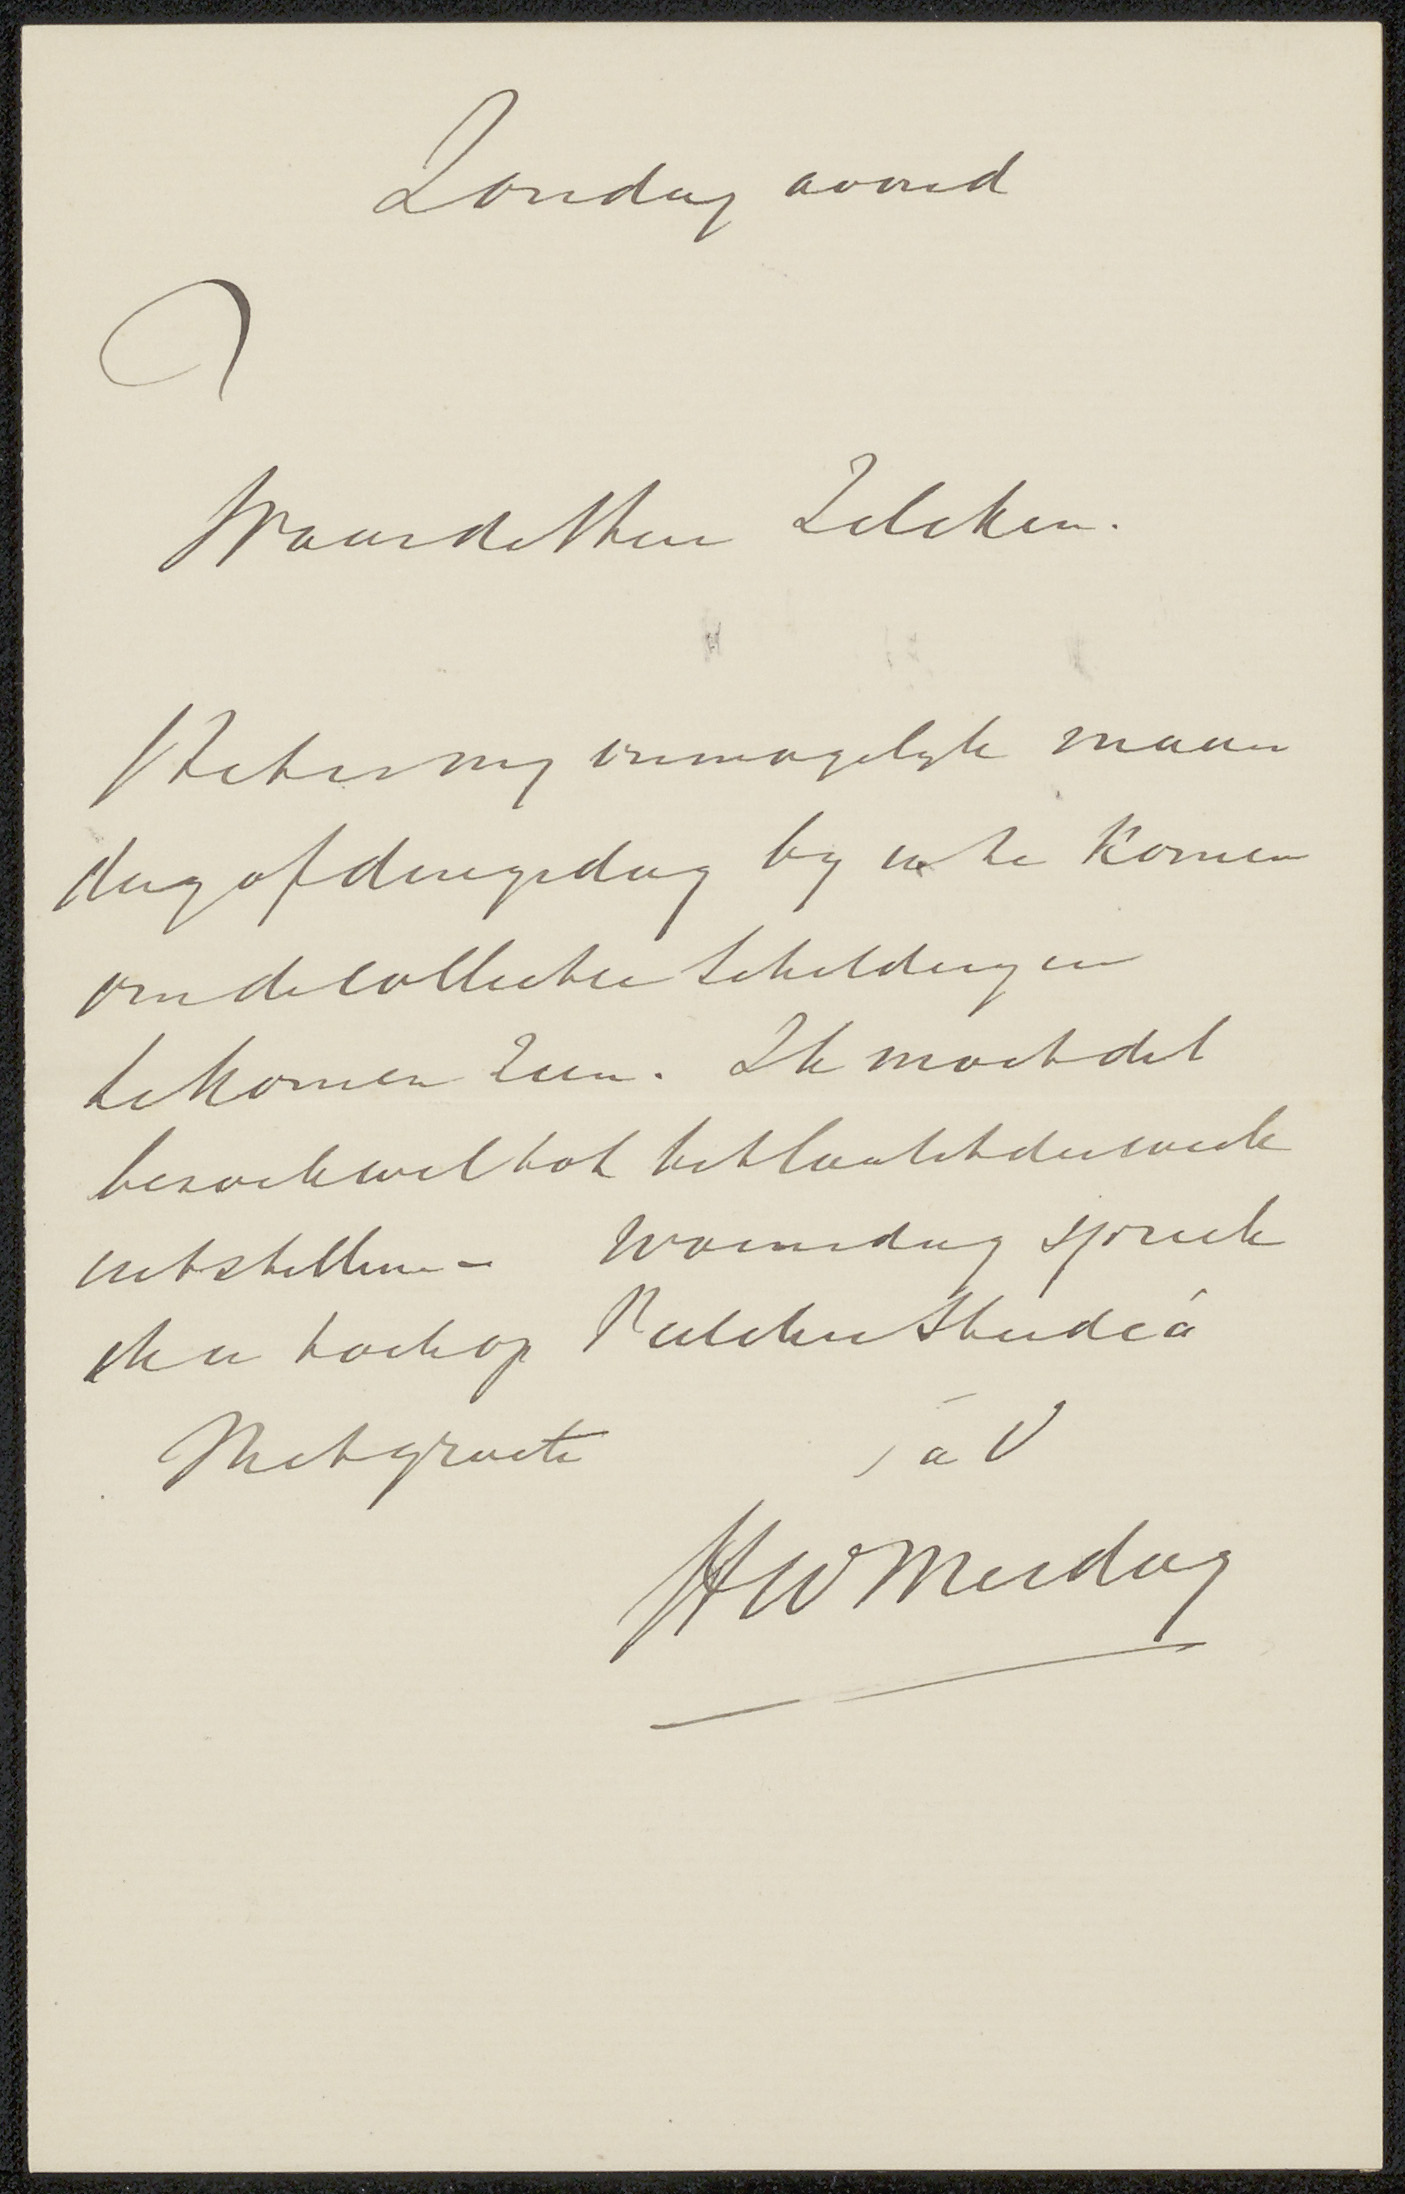 Zondag avond
Waarde Heer Zilcken.
Het is my onmogelyk maan
dag of dingsdag by u te komen
om de collectie schilderyen
te komen zien. Ik moet dit
bezoek wel tot het laatst der week
uitstellen - Woensdag spreek
ik u toch op Pulchri Studio
Met groete
t a V
HW Mesdag